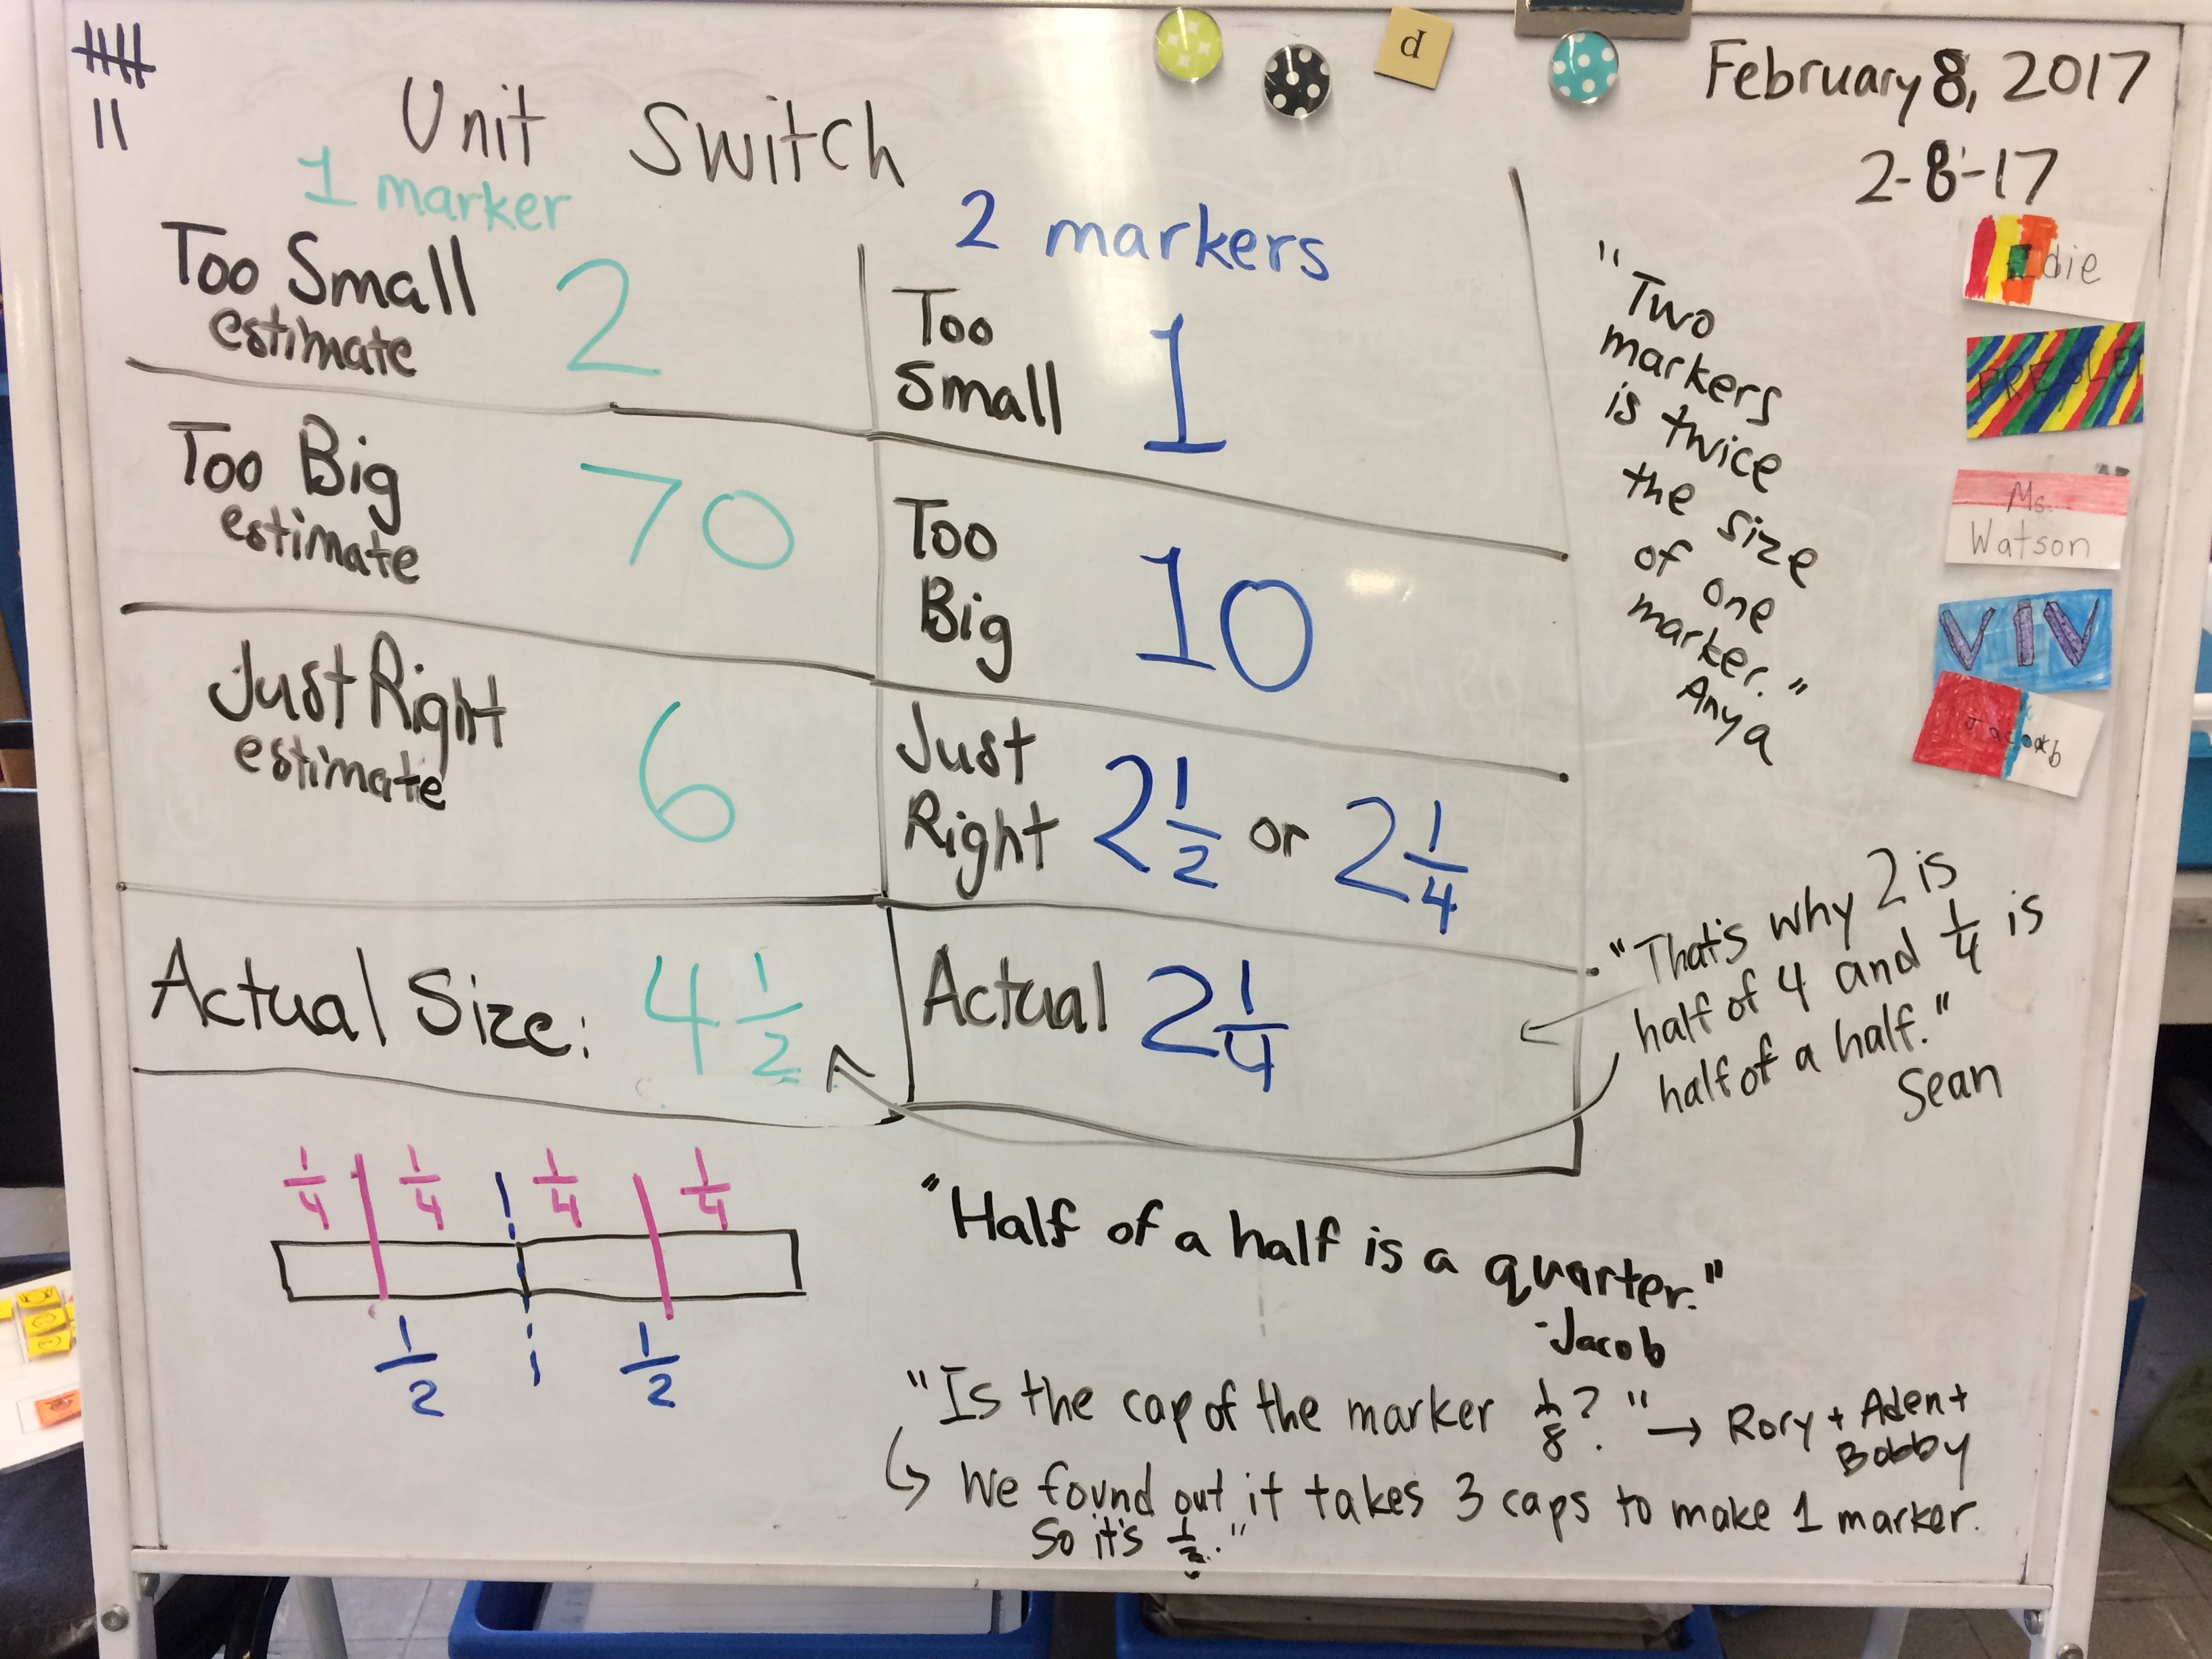 d
February 8, 2017
2-8-17
Unit Switch
1 marker
Too Small
estimate
2
Too Big
estimate
70
Just Right
estimate
6
Actual Size: 4 1/2
2 markers
Too
Small
1
Too
Big
10
Just
Right
2 1/2 or 2 1/4
Actual 2 1/4
"Two
markers
is twice
the size
of one
marker."
Anya
die
Ms.
Watson
VIV
"That's why 2 is
half of 4 and 1/4 is
half of a half."
Sean
1/4 1/4 1/4 1/4
1/2 1/2
"Half of a half is a quarter."
-Jacob
"Is the cap of the marker 1/8?" → Rory + Aden +
Bobby
↳ We found out it takes 3 caps to make 1 marker.
So it's 1/3."